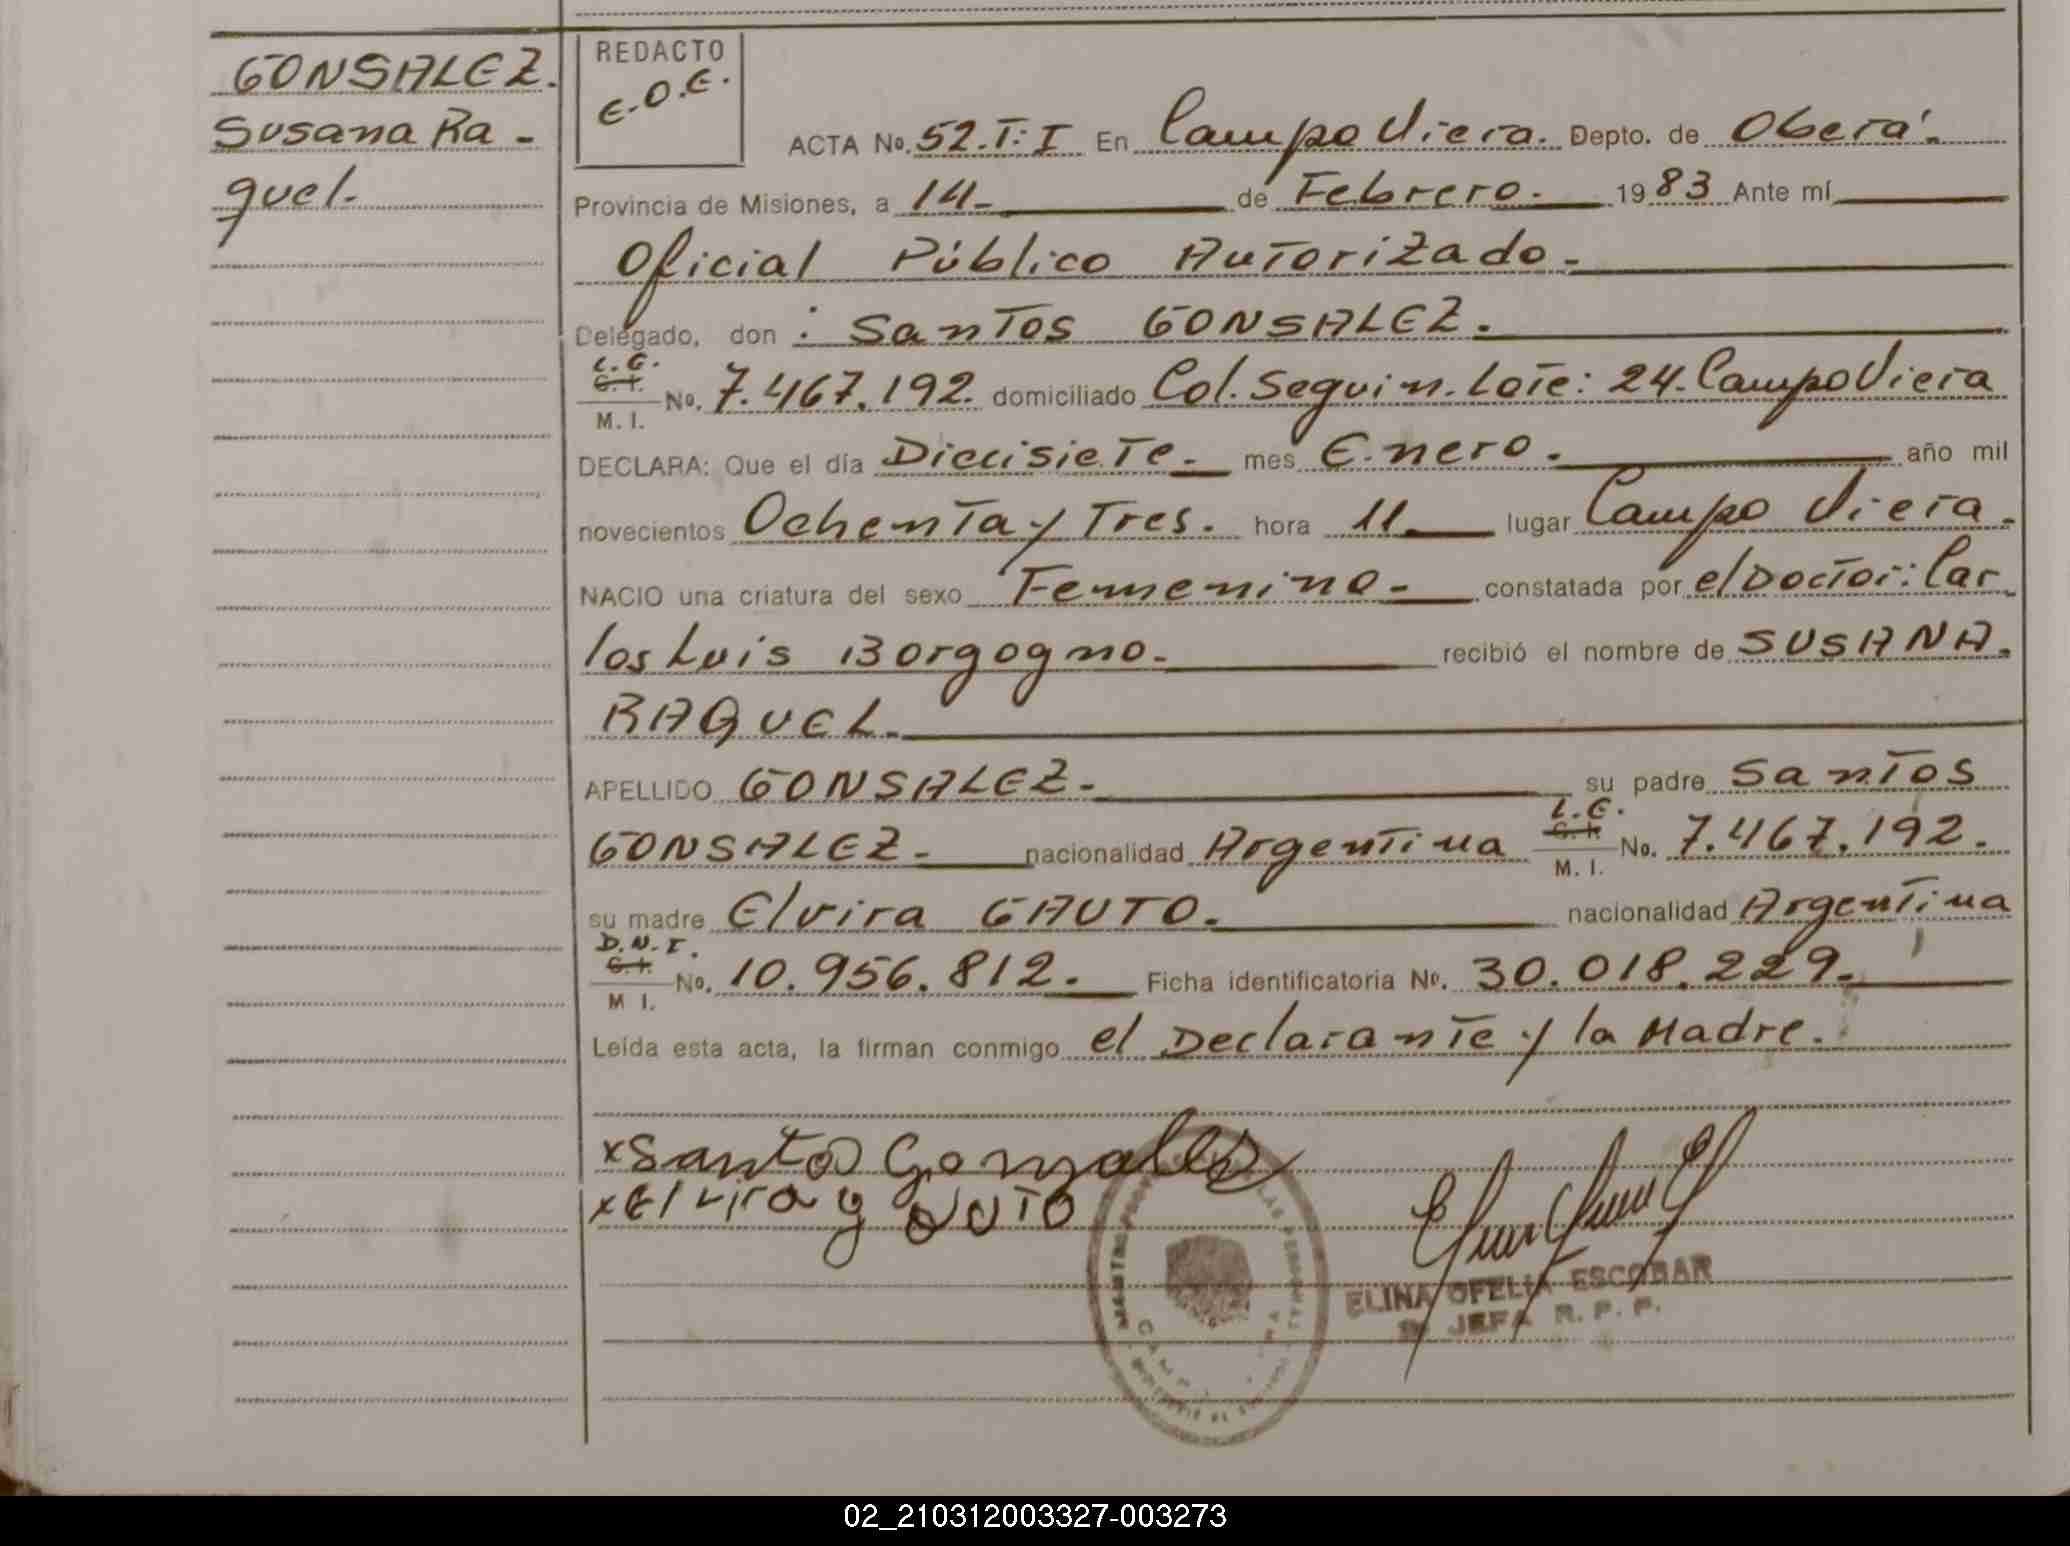 GONSALEZ.
Susana Ra-
quel.
REDACTO
E.O.E.
ACTA No. 52.T:I En Campo Viera. Depto. de Oberá.
Provincia de Misiones, a 14- de Febrero. 1983 Ante mí
Oficial Público Autorizado.
Delegado, don : Santos GONSALEZ.
L.E.
C.I.
M. I. No. 7.467.192. domiciliado Col. Seguin. Lote: 24. Campo Viera
DECLARA: Que el día Diecisiete- mes Enero. año mil
novecientos Ochenta y Tres. hora 11 lugar Campo Viera.
NACIO una criatura del sexo Femenino- constatada por el Doctor: Car
los Luis Borgogno. recibió el nombre de SUSANA.
RAQUEL.
APELLIDO GONSALEZ. su padre Santos
GONSALEZ- nacionalidad Argentina L.E. C.I. M. I. No. 7.467.192.
su madre Elvira GAUTO. nacionalidad Argentina
D.N.I.
C.I.
M I. No. 10.956.812. Ficha identificatoria No. 30.018.229.
Leída esta acta, la firman conmigo el Declarante y la Madre.
xSanto Gonzalez
xElvira gauto
ELINA OFELIA ESCOBAR
JEFA R. P. P.
02_210312003327-003273